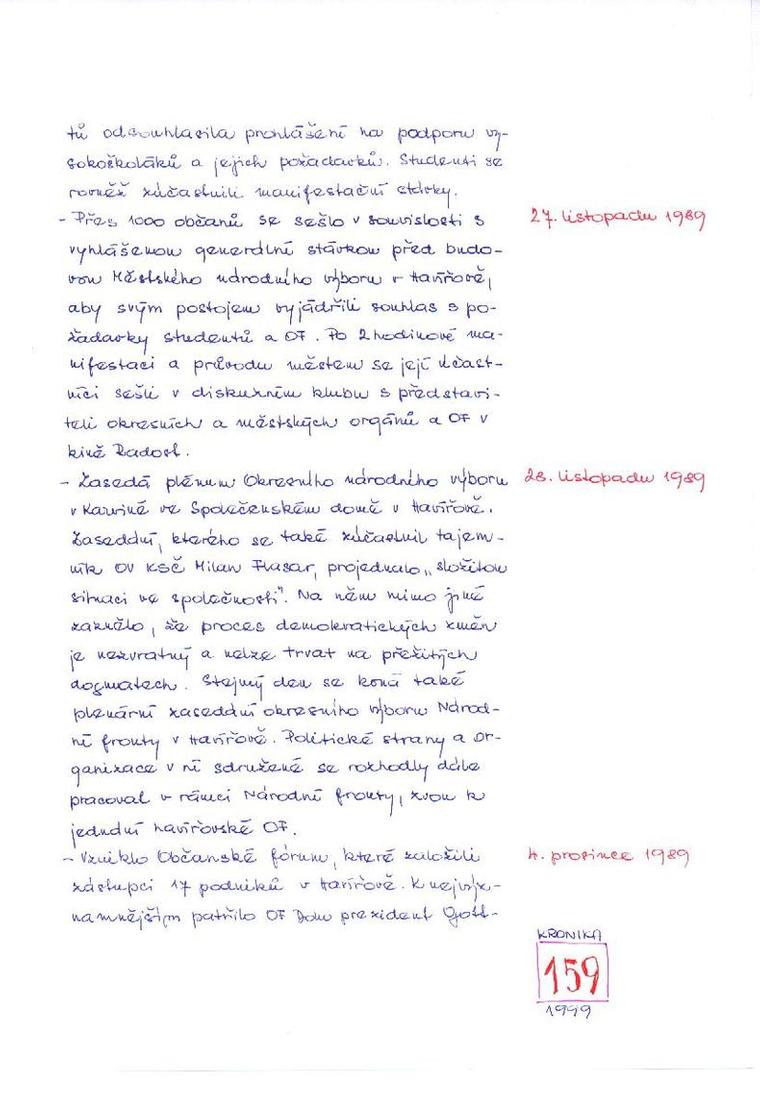 tů odsouhlasila prohlášení na podporu vy-
sokoškoláků a jejich požadavků. Studenti se
rovněž zúčastnili manifestační stávky.
- Přes 1000 občanů se sešlo v souvislosti s
27. listopadu 1989
vyhlášenou generální stávkou před budo-
vou Městského národního výboru v Havířově,
aby svým postojem vyjádřili souhlas s po-
žadavky studentů a OF. Po 2 hodinové ma-
nifestaci a průvodu městem se její účast-
níci sešli v diskuzním klubu s představi-
teli okresních a městských orgánů a OF v
kině Radost.
- Zasedá plénum Okresního národního výboru
28. listopadu 1989
v Karviné ve Společenském domě v Havířově.
Zasedání, kterého se také zúčastnil tajem-
ník OV KSČ Milan Frasar, projednalo „složitou
situaci ve společnosti". Na něm mimo jiné
zaznělo, že proces demokratických změn
je nezvratný a nelze trvat na přežitých
dogmatech. Stejný den se koná také
plenární zasedání okresního výboru Národ-
ní fronty v Havířově. Politické strany a or-
ganizace v ní sdružené se rozhodly dále
pracovat v rámci Národní fronty, zvou k
jednání havířovské OF.
- Vzniklo Občanské fórum, které založili
4. prosince 1989
zástupci 17 podniků v Havířově. K nejvýz-
namnějším patřilo OF Dolu prezident Gott-
KRONIKA
159
1999